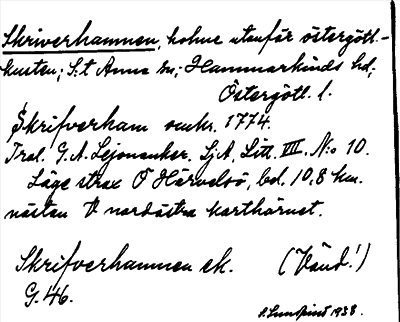 Skriverhamnen, holme utanför östergötl.-
kusten; S:t Anna sn; Hammarkinds hd;
Östergötl. l.
Skrifverham omkr. 1774.
Trol. G. A. Lejonanker. LjA, Litt. VIII. N:o 10.
Läge strax Ö Härvelsö, bd. 10,8 km.
nästan V nordöstra karthörnet.
Skrifverhamnen ek. (Vänd!)
G. 46.
P. Lundqvist 1938.